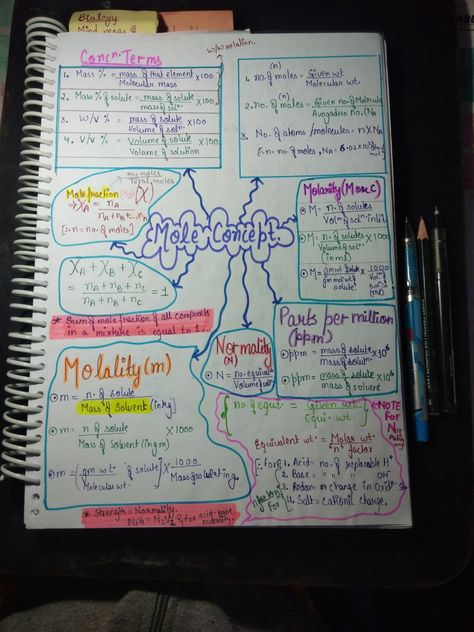 Biology
Mind maps
Concn. Terms
w/w relation.
1. Mass % = mass of that element / Molecular mass x100
2. Mass % of solute = mass of solute / mass of soln. x100
3. W/V % = mass of solute / Volume of soln. x100
4. V/V % = Volume of solute / Volume of solution x100
(n)
1. no. of moles = Given wt. / Molecular wt.
(n)
2. no. of moles = Given no. of Molecules / Avogadro no. (NA
3. No. of atoms/molecules = n x NA
[∴ n = no. of moles, NA =
Mole fraction
my moles / Total moles
(X)
⇒ XA = nA / nA+nB+...nn
(∴ n = no. of moles)
Mole Concept.
Molarity (M or C)
M = n. of solute / Vol of soln in litre
M = n. of solute / Volume of soln (in ml) x 1000
M = gm wt. of solute / gm mol wt of solute x 1000 / Vol of soln (ml)
XA + XB + XC
= nA+nB+nC / nA+nB+nC = 1
* Sum of mole fraction of all components
in a mixture is equal to 1.
Molality (m)
m = n. of solute / Mass of Solvent (in kg)
m = n of solute / Mass of Solvent (in gm) x 1000
m = (gm wt. / Molecular wt. of solute) x 1000 / Mass of solvent in g.
Normality
(N)
N = no. equival / Volume of soln
Parts per million
(ppm)
ppm = mass of solute / mass of solun. x 10⁶
ppm = mass of solute / mass of solvent x 10⁶
no. of equt = Given wt. / Equi. wt.
NOTE
For
N
Equivalent wt. = Molar wt. / n factor
[∴ For 1. Acid = no. of replacable H+
2. Base = " " " OH-
3. Redox = change in Oxidn
4. Salt = cationic charge.
n factor
for
* Strength = Normality.
N1V1 = N2V2 for acid-base